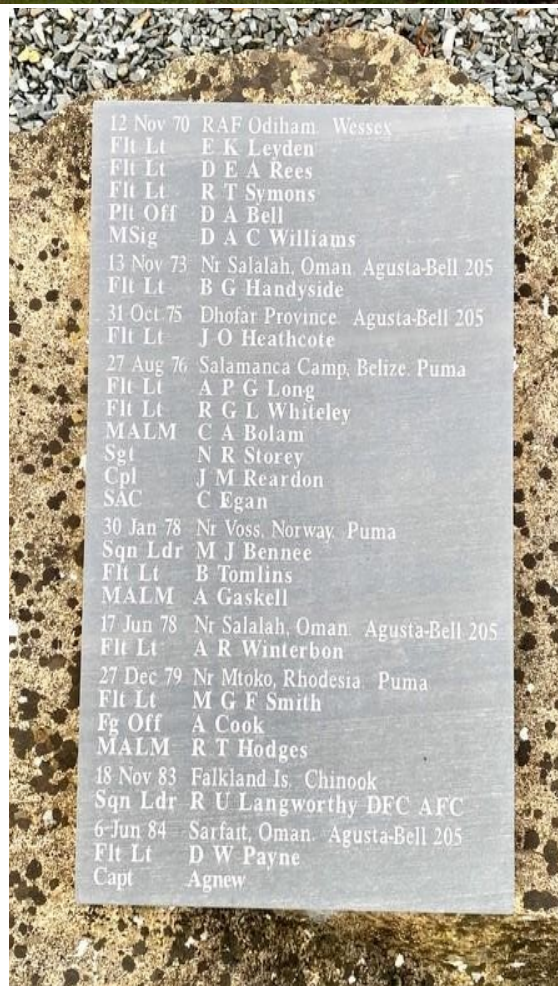 12 Nov 70 RAF Odiham. Wessex
Flt Lt E K Leyden
Flt Lt D E A Rees
Flt Lt R T Symons
Plt Off D A Bell
MSig D A C Williams
13 Nov 73 Nr Salalah, Oman. Agusta-Bell 205
Flt Lt B G Handyside
31 Oct 75 Dhofar Province. Agusta-Bell 205
Flt Lt J O Heathcote
27 Aug 76 Salamanca Camp, Belize. Puma
Flt Lt A P G Long
Flt Lt R G L Whiteley
MALM C A Bolam
Sgt N R Storey
Cpl J M Reardon
SAC C Egan
30 Jan 78 Nr Voss, Norway. Puma
Sqn Ldr M J Bennee
Flt Lt B Tomlins
MALM A Gaskell
17 Jun 78 Nr Salalah, Oman. Agusta-Bell 205
Flt Lt A R Winterbon
27 Dec 79 Nr Mtoko, Rhodesia. Puma
Flt Lt M G F Smith
Fg Off A Cook
MALM R T Hodges
18 Nov 83 Falkland Is. Chinook
Sqn Ldr R U Langworthy DFC AFC
6 Jun 84 Sarfait, Oman. Agusta-Bell 205
Flt Lt D W Payne
Capt Agnew